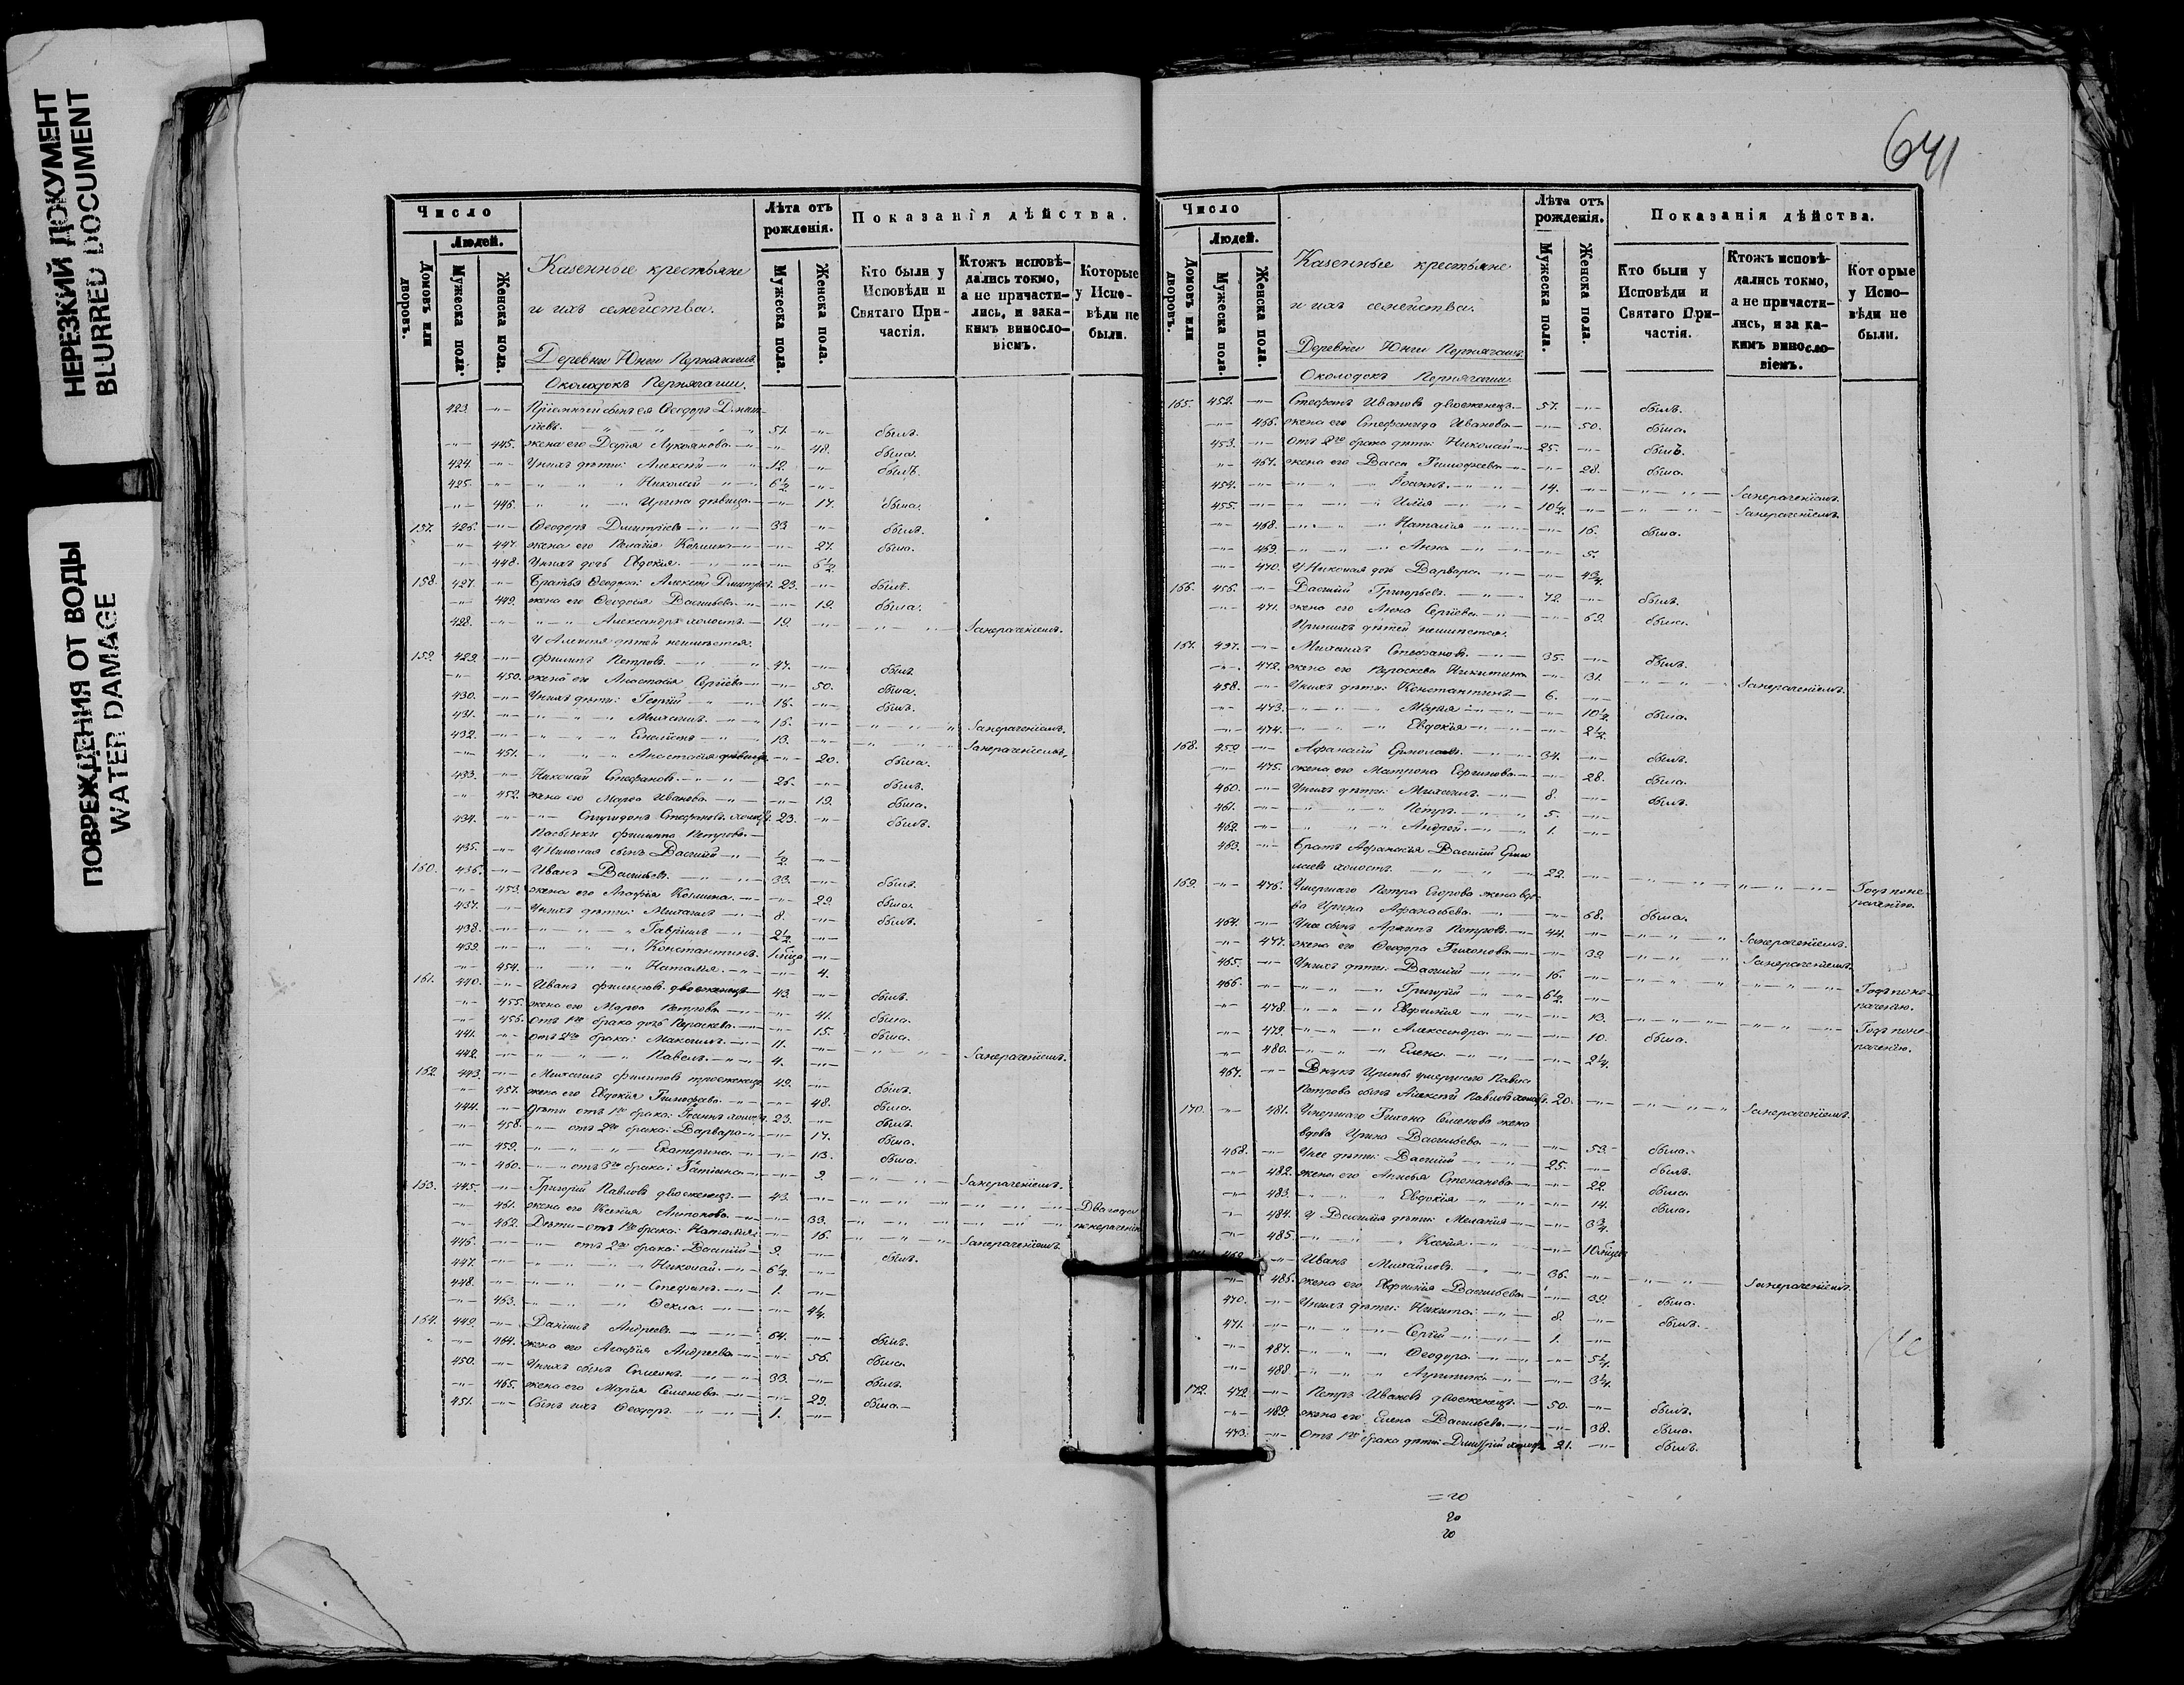 НЕРЕЗКИЙ ДОКУМЕНТ
BLURRED DOCUMENT
ПОВРЕЖДЕНИЯ ОТ ВОДЫ
WATER DAMAGE
Число
Людей.
Домовъ или дворовъ.
Мужеска пола.
Женска пола.
Казенные крестьяне
и ихъ семейства.
Деревни Юнги
Околодокъ
Лѣта отъ рожденія.
Мужеска пола.
Женска пола.
Показанія дѣйства.
Кто были у Исповѣди и Святаго Причастія.
Ктожъ исповѣдались токмо, а не причастились, и закакимъ винословіемъ.
Которые у Исповѣди не были.
423. Пріемный сынъ ея Ѳеодоръ Дмит-
ріевъ. 51. былъ.
445. жена его Дарія Лукоянова 48. была.
424. У нихъ дѣти: Алексѣй 12. былъ.
425. Николай 6½
446. Ирина дѣвица 17. была.
157. 426. Ѳеодоръ Дмитріевъ 33 былъ.
447. жена его Пелагія Козмина 27. была.
448. У нихъ дочь Евдокія. 6½
158. 427. Братья Ѳеодора: Алексѣй Дмитріевъ. 23. былъ.
449. жена его Ѳеодосія Васильева. 19. была.
428. Александръ холостъ 19. Занераченіемъ.
У Алексѣя дѣтей неимѣется.
159. 429. Филиппъ Петровъ. 47. былъ
450. жена его Анастасія Сергіева 50. была.
430. У нихъ дѣти: Георгій 18. былъ.
431. Михаилъ. 16. Занераченіемъ.
432. 13. Занераченіемъ.
451. Анастасія дѣвица 20. была.
433. Николай Стефановъ. 26. былъ.
452. жена его Марѳа Иванова. 19. была.
434. Спиридонъ Стефановъ. холостъ. 23. былъ.
Пасынки Филиппа Петрова.
435. У Николая сынъ Василій ½
160. 436. Иванъ Васильевъ. 33. былъ.
453. жена его Агафія Козмина. 29. была.
437. У нихъ дѣти: Михаилъ 8. былъ.
438. Гавріилъ 2½
439. Константинъ.
454. Наталья. 4.
161. 440. Иванъ Филиповъ двоеженецъ 43. былъ.
455. жена его Марѳа Петрова 41. была.
456. Отъ 1го брака дочь Параскева. 15. была.
441. отъ 2го брака: Максимъ. 11. Занераченіемъ.
442. Павелъ. 4.
162. 443. Михаилъ Филиповъ троеженецъ 49. былъ.
457. жена его Евдокія Тимофѣева. 48. была.
444. Дѣти отъ 1го брака: Іоаннъ холостъ. 23. былъ.
458. отъ 2го брака: Варвара 17. была.
459. Екатерина. 13. была.
460. отъ 3го брака: Татіана 9. Занераченіемъ.
163. 445. Григорій Павловъ двоеженецъ. 43. Два года
461. жена его Ксенія Антонова. 33. понераченію
462. Дѣти отъ 1го брака: Наталія. 16. Занераченіемъ.
446. отъ 2го брака: Василій 9. былъ.
447. Николай. 6½
448. Стефанъ. 1.
463. Ѳекла. 4¼
164. 449. Даніилъ Андреевъ 64. былъ.
464. жена его Агафія Андреева 56. была
450. У нихъ сынъ Симеонъ. 33. былъ.
465. жена его Марія Семенова. 29. была.
451. Сынъ ихъ Ѳеодоръ. 1.
641
Число
Людей.
Домовъ или дворовъ.
Мужеска пола.
Женска пола.
Казенные крестьяне
и ихъ семейства.
Деревни Юнги
Околодокъ
Лѣта отъ рожденія.
Мужеска пола.
Женска пола.
Показанія дѣйства.
Кто были у Исповѣди и Святаго Причастія.
Ктожъ исповѣдались токмо, а не причастились, и за какимъ винословіемъ.
Которые у Исповѣди не были.
165. 452. Стефанъ Ивановъ двоеженецъ 57. былъ.
466. жена его Стефанида Иванова 50. была.
453. Отъ 2го брака дѣти: Николай 25. былъ.
467. жена его Васса Тимофеева 28. была.
454. Іоаннъ. 14. Занераченіемъ.
455. Илія 10½ Занераченіемъ.
468. Наталія 16. была.
469. Анна 5.
470. У Николая дочь Варвара ¾
166. 456. Василій Григорьевъ 72. былъ.
471. жена его Анна Сергіева. 69. была.
При нихъ дѣтей неимѣется.
167. 457. Михаилъ Стефановъ 35. былъ.
472. жена его Параскева Никитина 31. Занераченіемъ.
458. У нихъ дѣти: Константинъ 6.
473. Марія 10½ была.
474. Евдокія 2½
168. 459. Афанасій Ермолаевъ. 34. былъ.
475. жена его Матрона 28. была.
460. У нихъ дѣти: Михаилъ. 8. былъ.
461. Петръ. 5.
462. Андрей. 1.
463. Братъ Афанасія Василій Ермо
лаевъ холостъ. 22. Годъ поне
169. 476. Умершаго Петра Егорова жена вдо- раченію.
ва Ирина Афанасьева. 68. была.
464. У нее сынъ Архипъ Петровъ 44. Занераченіемъ.
477. жена его Ѳеодора Тихонова 39. Занераченіемъ.
465. У нихъ дѣти: Василій 16. Годъ поне-
466. Григорій 6½ раченію.
478. Евфимія 13. Годъ поне-
479. Александра. 10. была. раченію.
480. Елена. 2¼
467. Внукъ Ирины умершаго Павла
Петрова сынъ Алексѣй Павловъ холостъ. 20. Занераченіемъ.
170. 481. Умершаго Тихона Семенова жена
вдова Ирина Васильева 53. была.
468. У нее дѣти: Василій 25. былъ.
482. жена его Анисья Степанова 22. была.
483. Евдокія 14. была.
484. У Василія дѣти: Меланія 3¾
485. Ксенія.
469. Иванъ Михайловъ. 36. Занераченіемъ.
486. жена его Евфимія Васильева 39. была.
470. У нихъ дѣти: Никита 8. былъ.
471. Сергій 1.
487. Ѳеодора. 5¼
488. Агрипина 3¼
172. 472. Петръ Ивановъ двоеженецъ. 50. былъ.
489. жена его Елена Васильева. 38. была.
473. Отъ 1го брака дѣти: Дмитрій холостъ 21. былъ.
=20
20
20